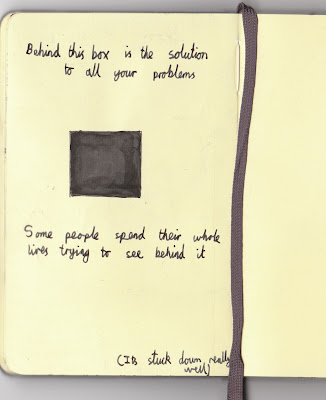 Behind this box is the solution
to all your problems
Some people spend their whole
lives trying to see behind it
(It's stuck down really
well)